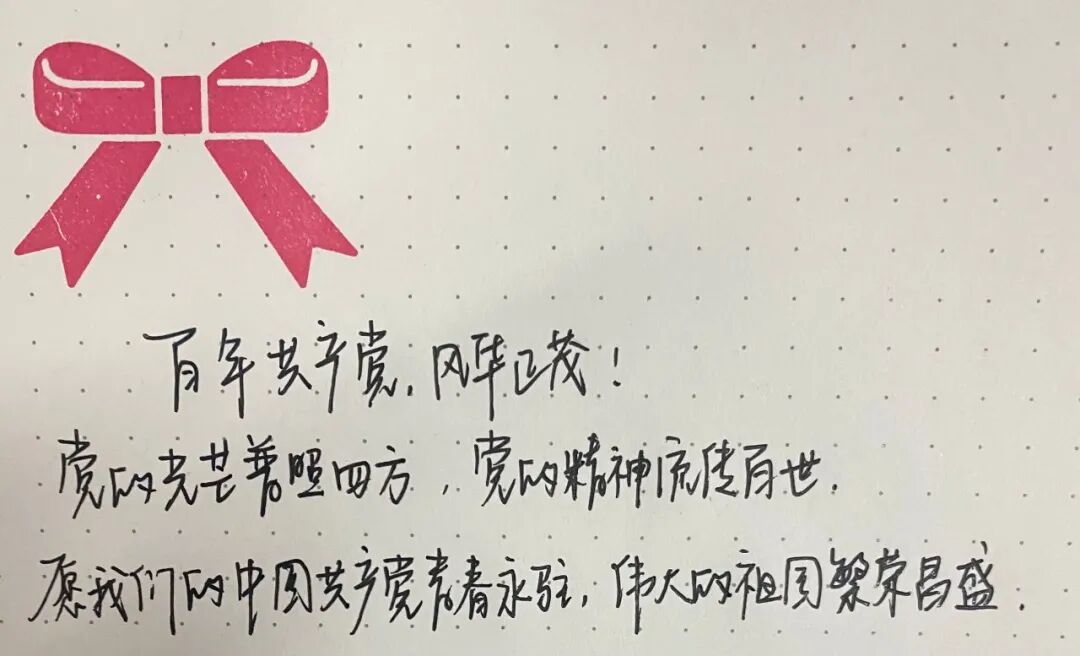 百年共产党，风华正茂！
党的光芒普照四方，党的精神流传百世．
愿我们的中国共产党青春永驻，伟大的祖国繁荣昌盛．